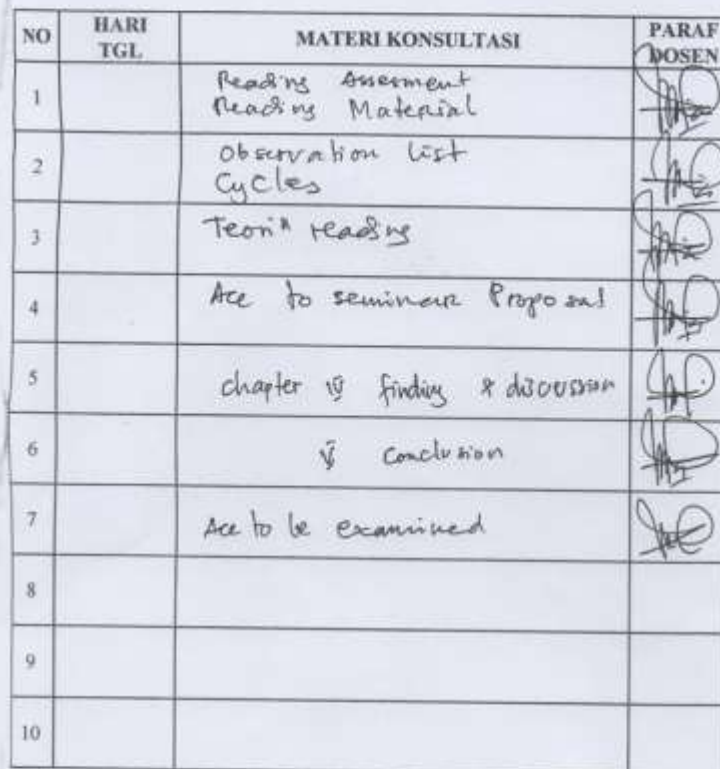 NO HARI TGL MATERI KONSULTASI PARAF DOSEN
1 Reading Assesment
Reading Material
2 Observation List
Cycles
3 Teori" reading
4 Acc to seminar Proposal
5 chapter IV finding & discussion
6 V conclusion
7 Acc to be examined
8
9
10